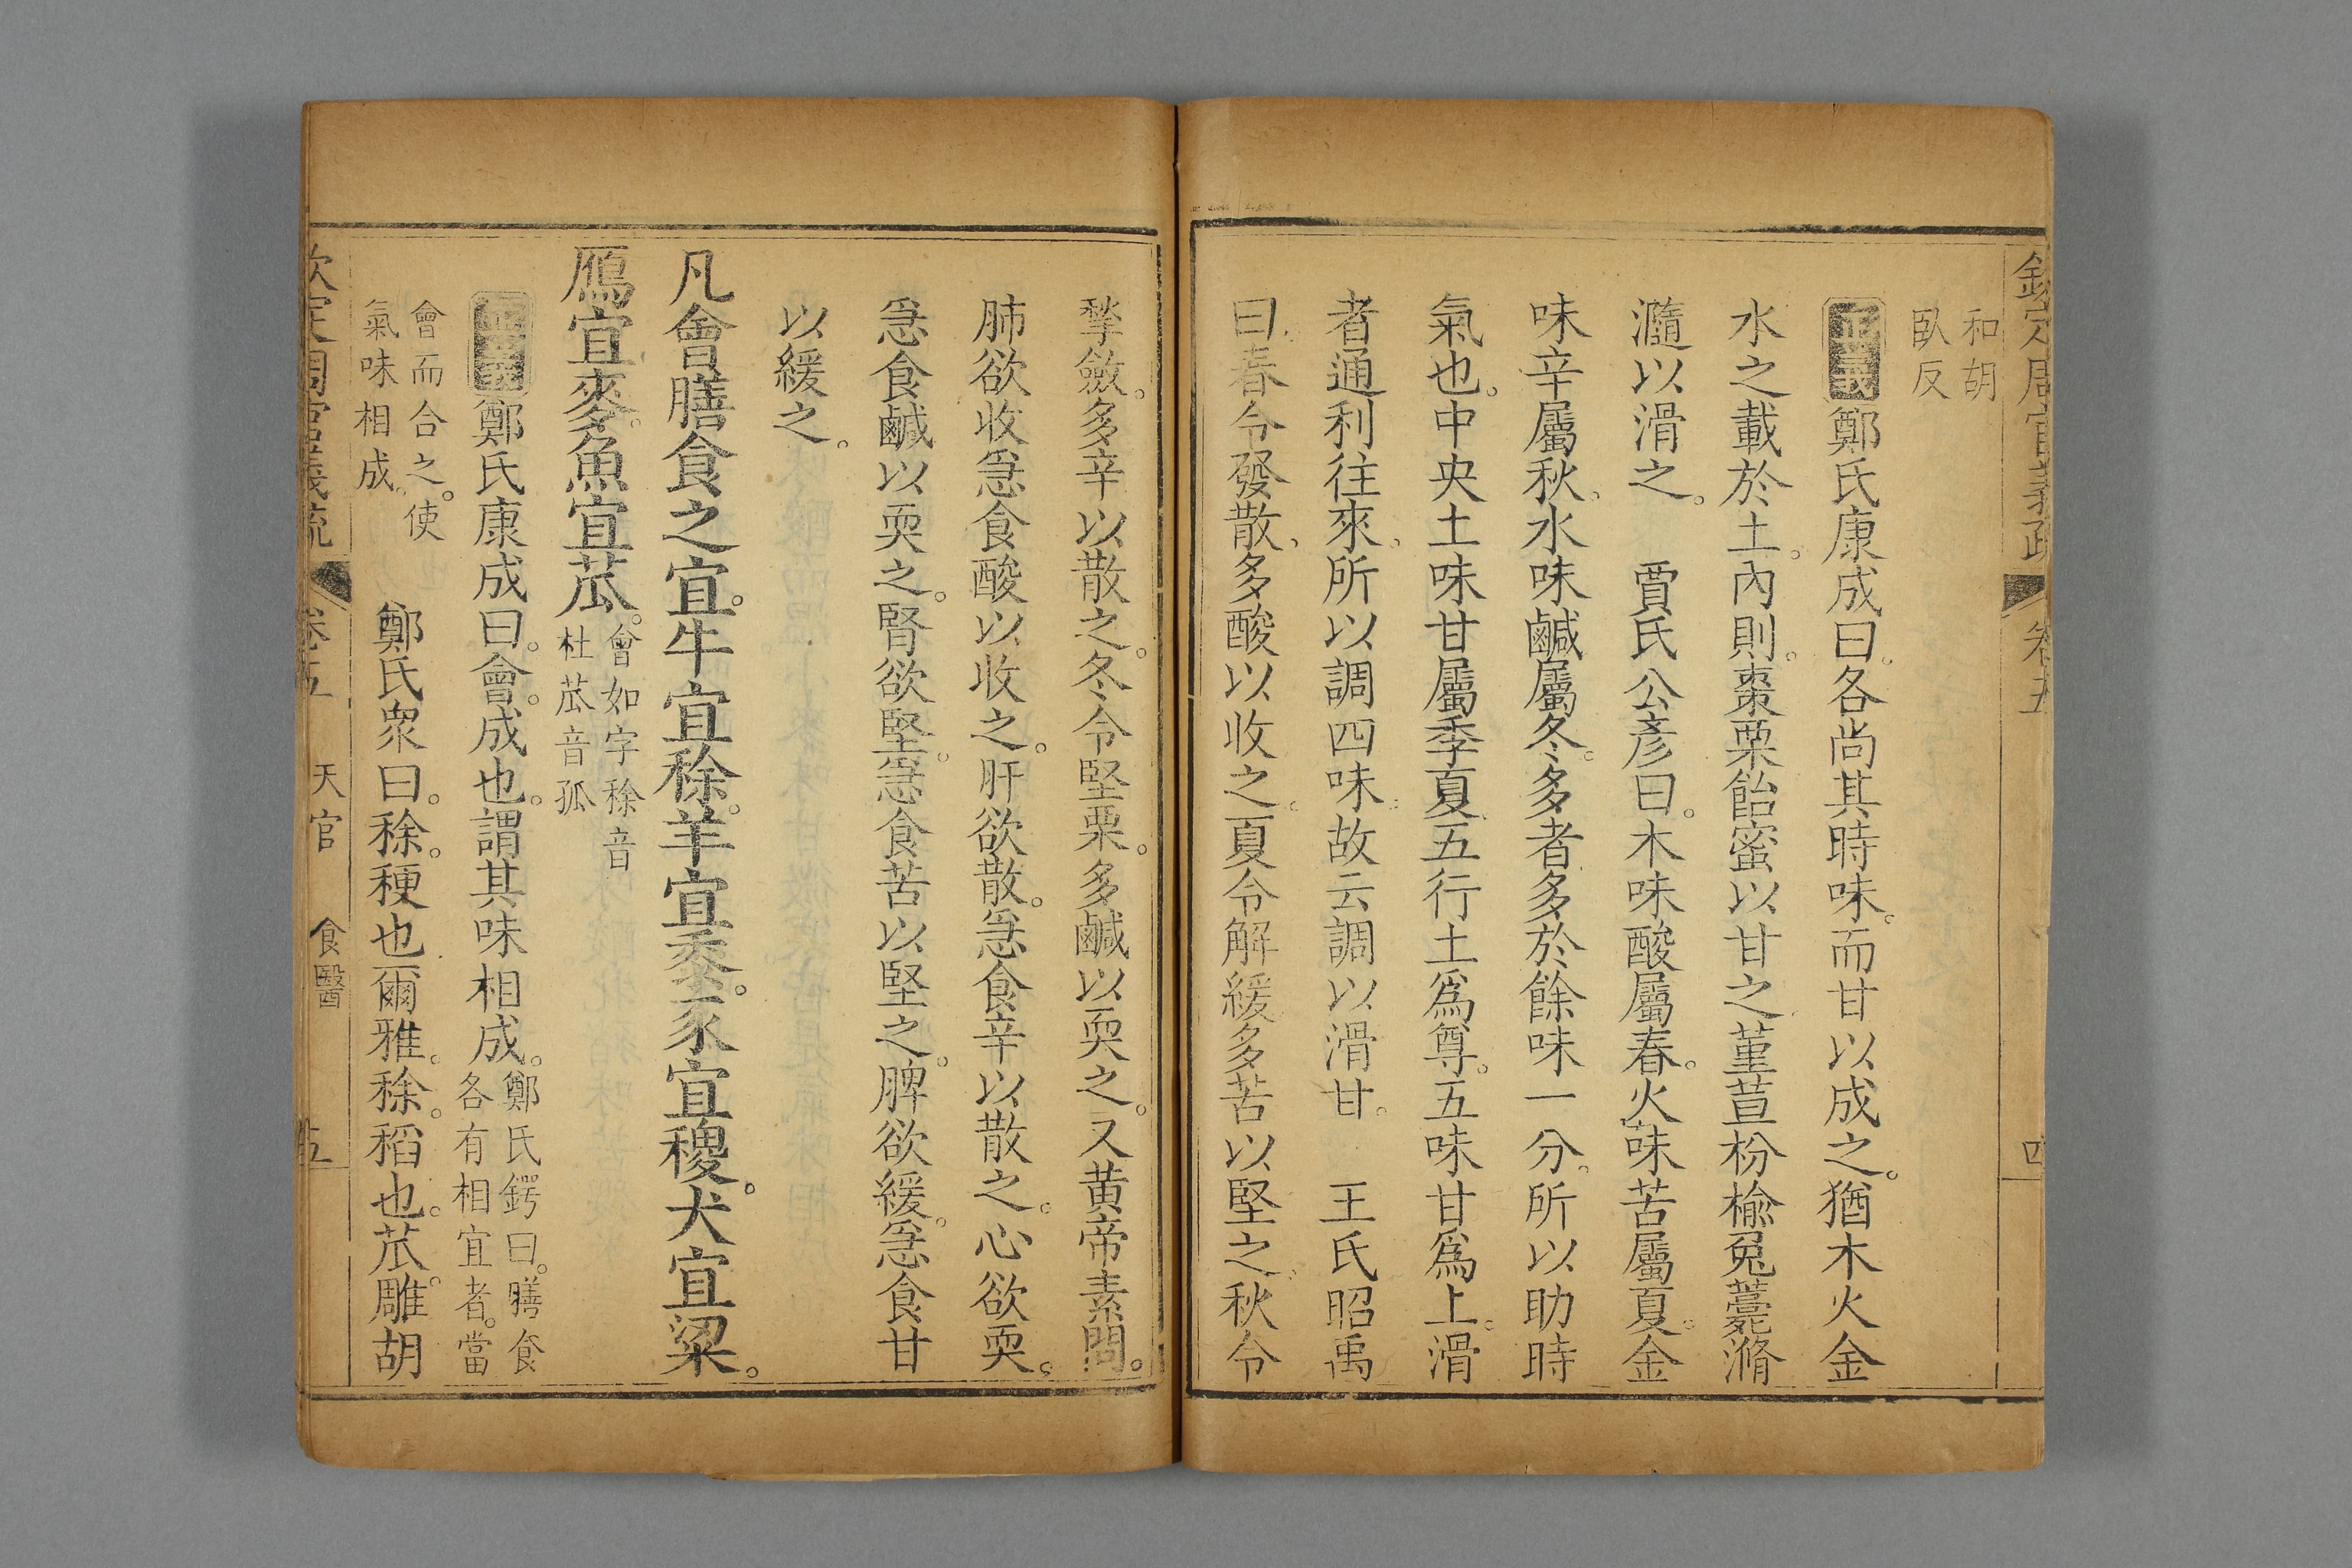 欽定周官義疏 卷五 四
和胡
臥反
正義鄭氏康成曰。各尚其時味。而甘以成之。猶木火金
水之載於土。內則。棗栗飴蜜以甘之堇荁枌榆免薧滫
瀡以滑之。 賈氏公彥曰。木味酸屬春。火味苦屬夏。金
味辛屬秋。水味鹹屬冬。多者多於餘味一分。所以助時
氣也。中央土味甘屬季夏。五行土爲尊。五味甘爲上。滑
者通利往來。所以調四味。故云調以滑甘。 王氏昭禹
曰。春令發散。多酸以收之。夏令解緩多苦以堅之。秋令
揫斂。多辛以散之。冬令堅栗。多鹹以耎之。又黃帝素問。
肺欲收急食酸以收之。肝欲散。急食辛以散之。心欲耎。
急食鹹以耎之。腎欲堅。急食苦以堅之。脾欲緩。急食甘
以緩之。
凡會膳食之宜。牛宜稌。羊宜黍。豕宜稷。犬宜粱。
鴈宜麥。魚宜苽。
會如字稌音
杜苽音孤
正義鄭氏康成曰。會。成也。謂其味相成。
鄭氏鍔曰。膳食
各有相宜者。當
會而合之。使
氣味相成。
鄭氏衆曰。稌。稉也爾雅。稌。稻也。苽。雕胡
欽定周官義疏 卷五 天官 食醫 五